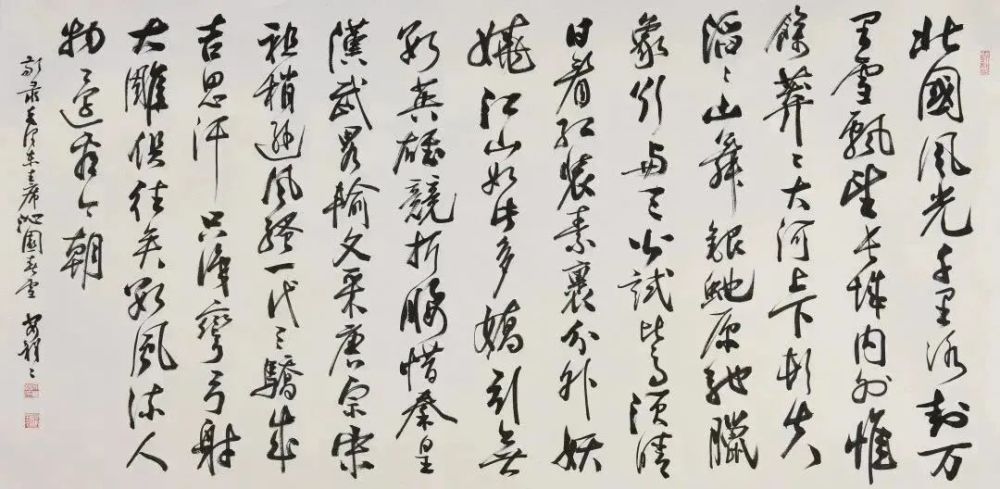 北國風光千里冰封万
里雪飄望长城内外惟
餘莽〻大河上下頓失
滔〻山舞銀蛇原驰臘
象欲与天公試比高須晴
日看红装素裹分外妖
娆江山如此多嬌引无
数英雄競折腰惜秦皇
漢武畧输文采唐宗宋
祖稍逊風骚一代天驕成
吉思汗只识彎弓射
大雕俱往矣数風流人
物還看今朝
敬录毛泽东主席沁園春雪